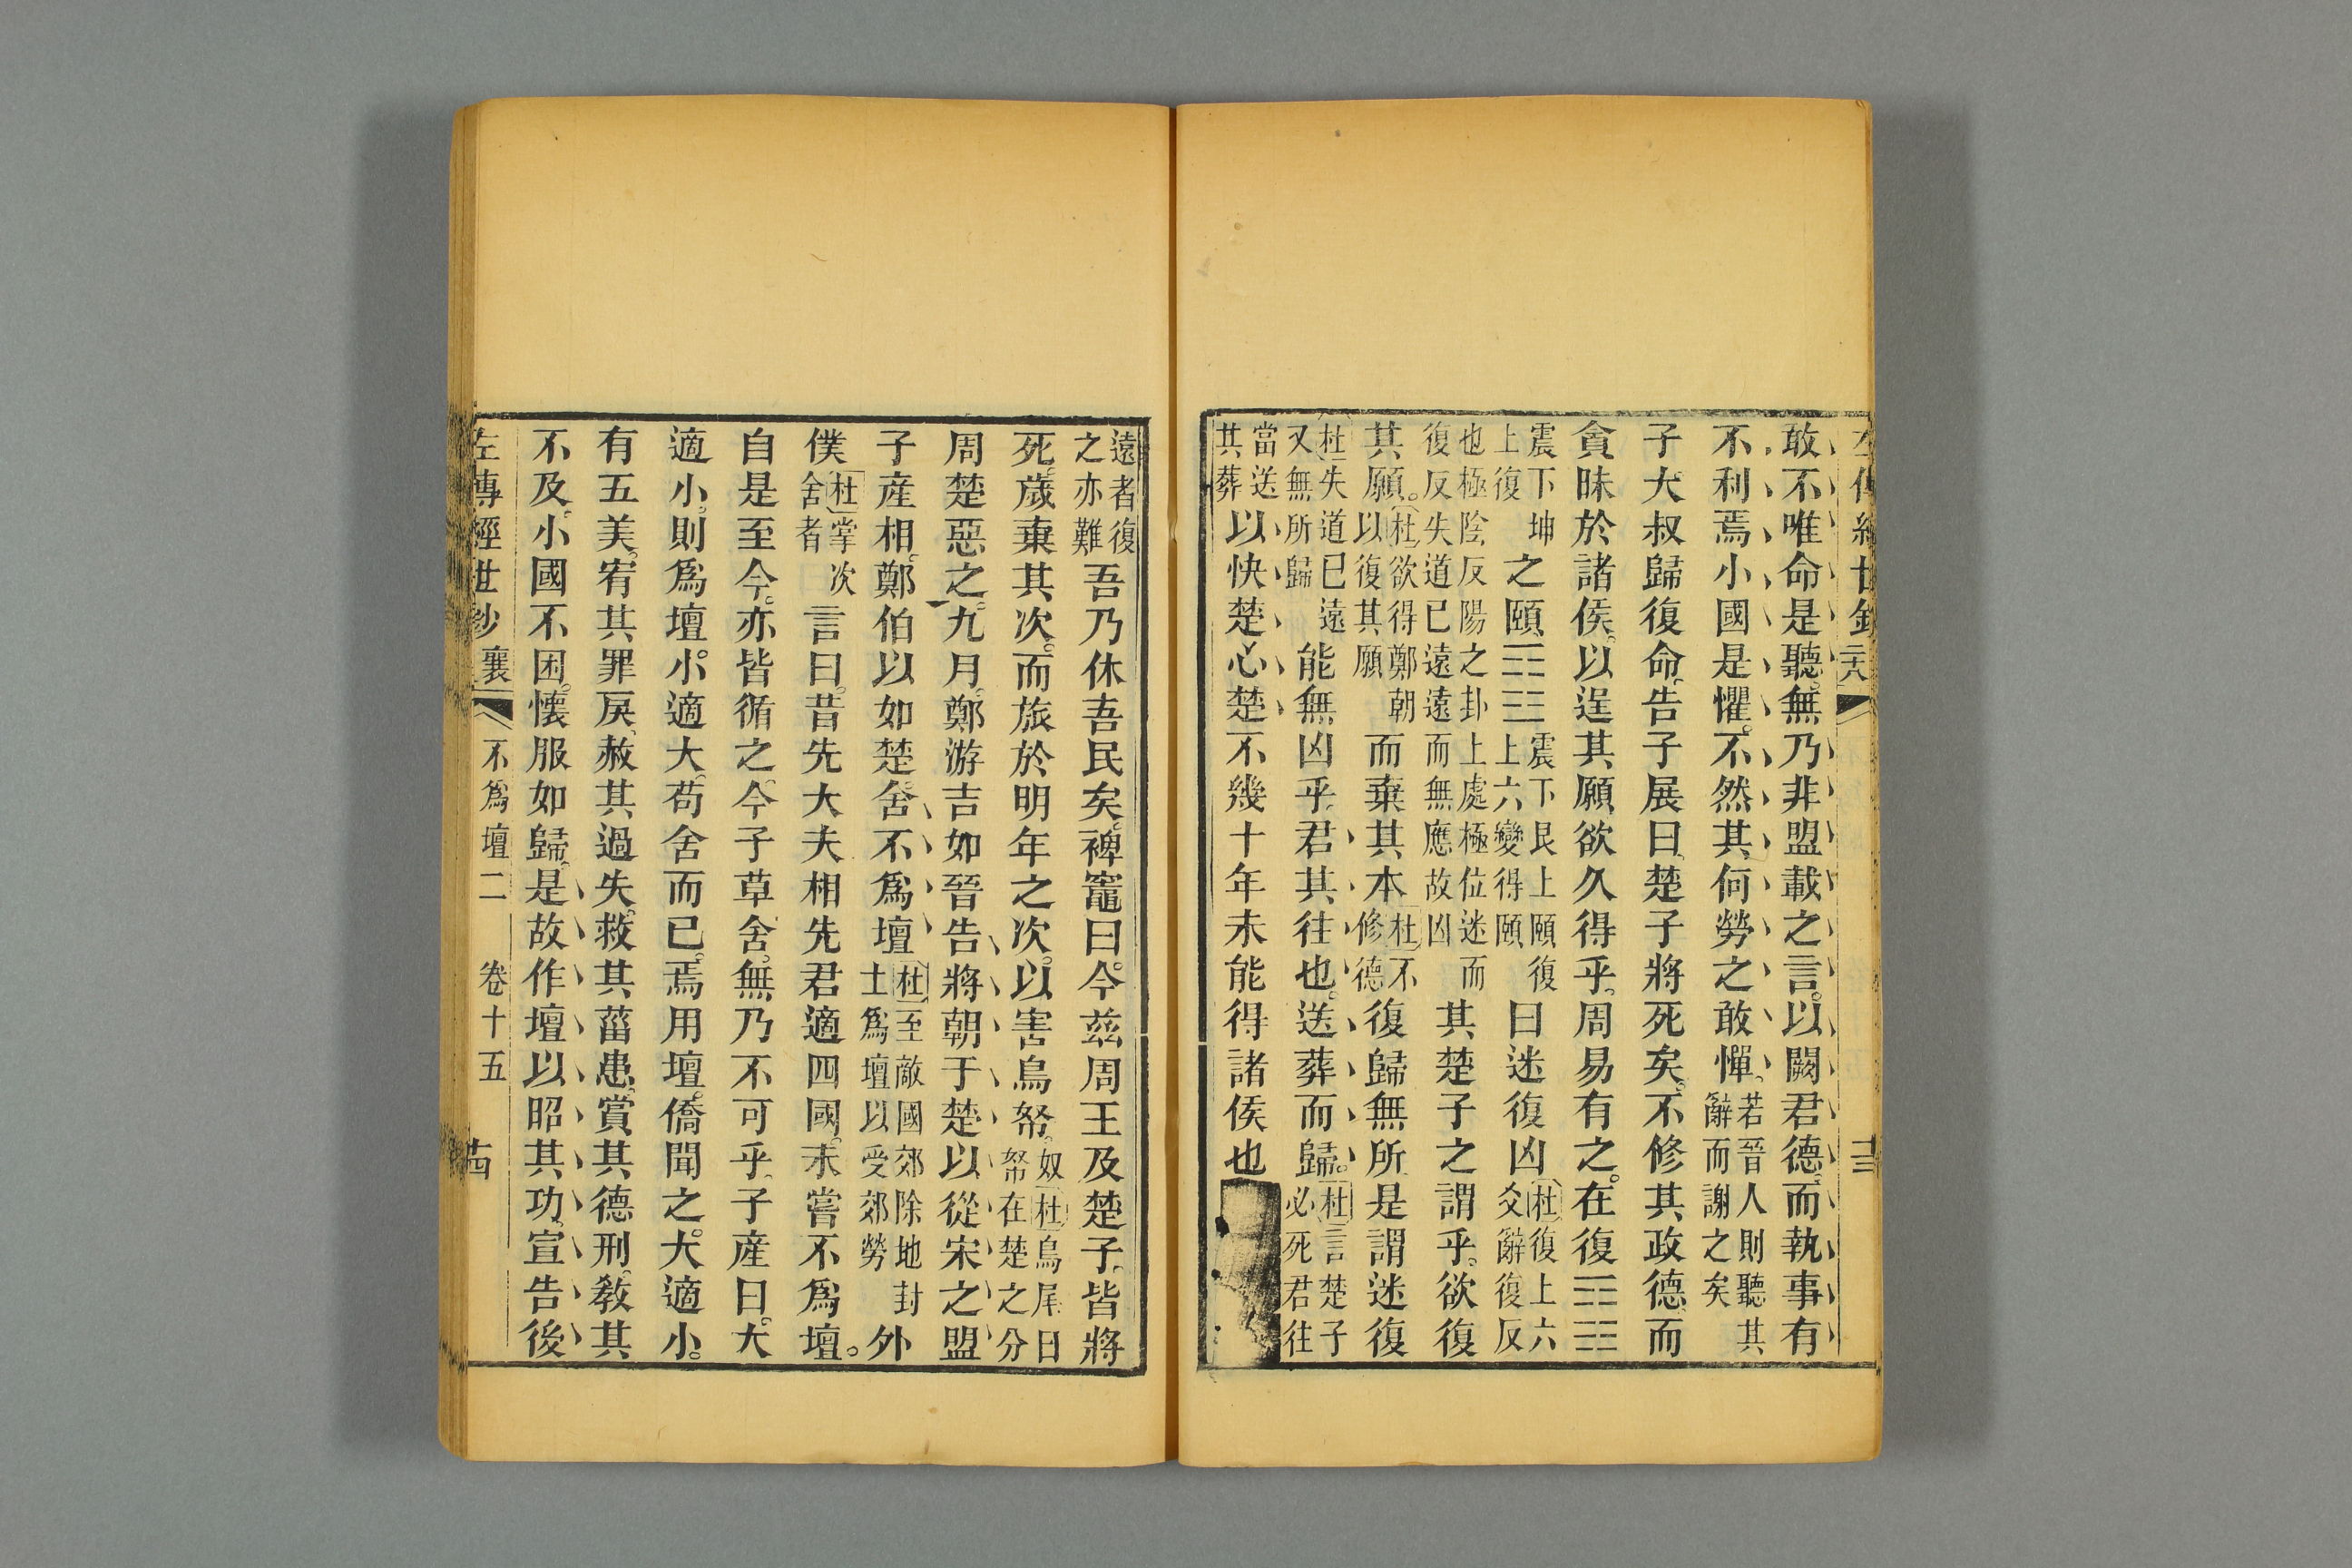 左傳經世鈔 二十八 十三
敢不唯命是聽無乃非盟載之言以闕君德而執事有
不利焉小國是懼不然其何勞之敢憚若晉人則聽其辭而謝之矣
子大叔歸復命告子展曰楚子將死矣不修其政德而
貪昧於諸侯以逞其願欲久得乎周易有之在復䷗
震下坤上復之頤䷚震下艮上頤復上六變得頤曰迷復凶杜復上六爻辭復反
也極陰反陽之卦上處極位迷而復反失道已遠遠而無應故凶其楚子之謂乎欲復
其願杜欲得鄭朝以復其願而棄其本杜不修德復歸無所是謂迷復
杜失道已遠又無所歸能無凶乎君其往也送葬而歸杜言楚子必死君往
當送其葬以快楚心楚不幾十年未能得諸侯也
遠者復之亦難吾乃休吾民矣裨竈曰今茲周王及楚子皆將
死歲棄其次而旅於明年之次以害鳥帑奴杜鳥尾曰帑在楚之分
周楚惡之九月鄭游吉如晉告將朝于楚以從宋之盟
子産相鄭伯以如楚舍不爲壇杜至敵國郊除地封土爲壇以受郊勞外
僕杜掌次舍者言曰昔先大夫相先君適四國未嘗不爲壇
自是至今亦皆循之今子草舍無乃不可乎子産曰大
適小則爲壇小適大苟舍而已焉用壇僑聞之大適小
有五美宥其罪戾赦其過失救其菑患賞其德刑教其
不及小國不困懷服如歸是故作壇以昭其功宣告後
左傳經世鈔 襄 不爲壇二 卷十五 十四